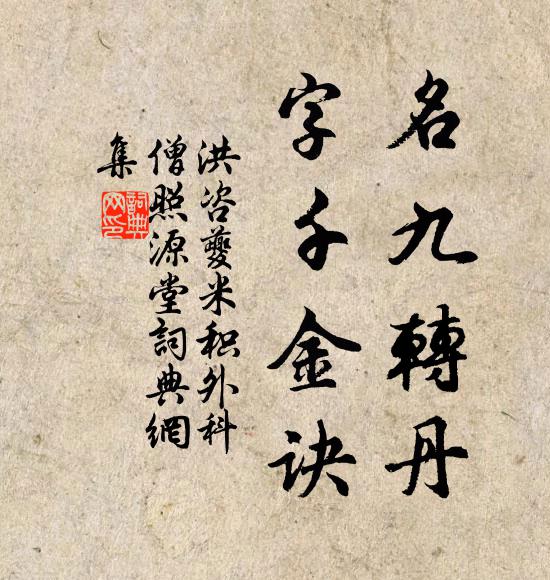 名九轉丹
字千金訣
洪咨夔米积外科
僧照源堂詞典網
集
詞典網印